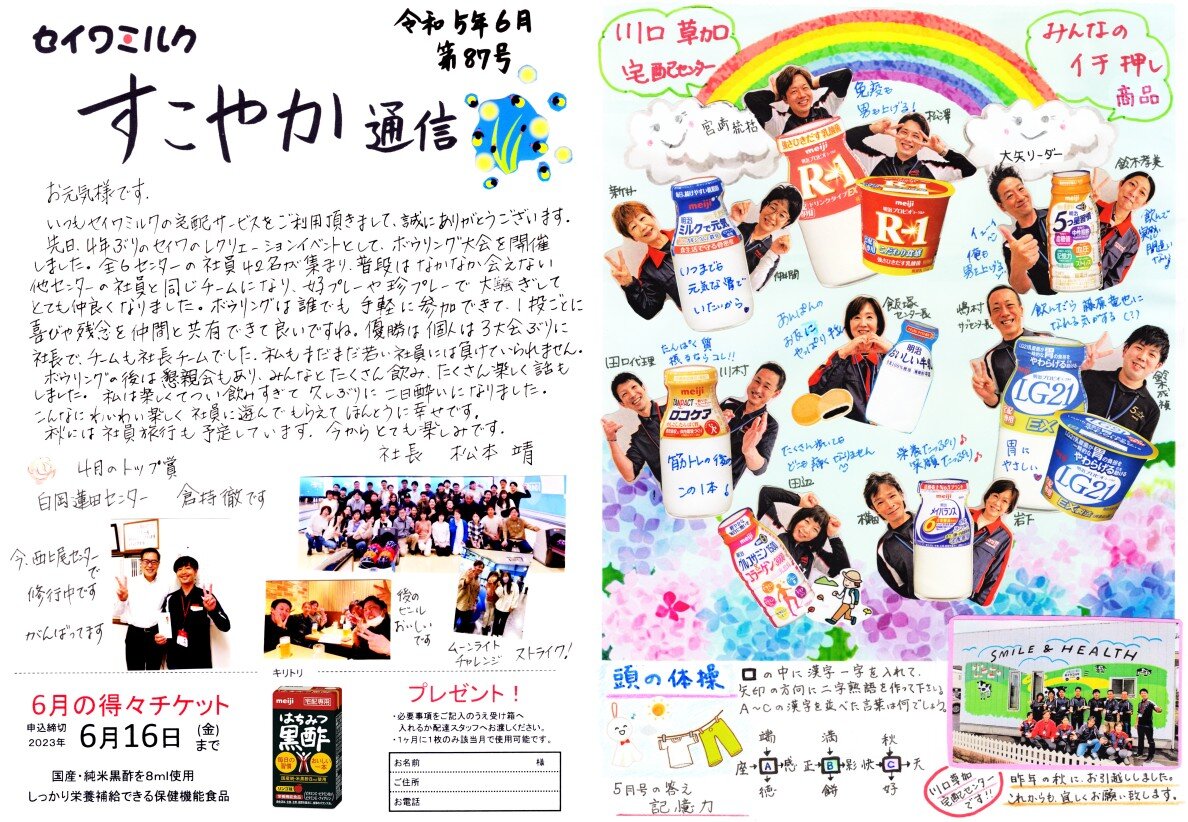 セイワミルク
令和5年6月
第87号
すこやか通信
お元気様です。
いつもセイワミルクの宅配サービスをご利用頂きまして、誠にありがとうございます。
先日、4年ぶりのセイワのレクリエーションイベントとして、ボウリング大会を開催
しました。全6センターの社員42名が集まり、普段はなかなか会えない
他センターの社員と同じチームになり、好プレーや珍プレーで大騒ぎして
とても仲良くなりました。ボウリングは誰でも手軽に参加できて、1投ごとに
喜びや残念を仲間と共有できて良いですね。優勝は個人は3大会ぶりに
社長で、チームも社長チームでした。私もまだまだ若い社員には負けていられません。
ボウリングの後は懇親会もあり、みんなとたくさん飲み、たくさん楽しく話も
しました。私は楽しくてつい飲みすぎて久しぶりに二日酔いになりました。
こんなにわいわい楽しく社員に遊んでもらえてほんとうに幸せです。
秋には社員旅行も予定しています。今からとても楽しみです。
社長 松本 靖
4月のトップ賞
白岡蓮田センター 倉持徹です
今、西上尾センター
で
修行中です
がんばってます
後の
ビール
おいしい
です
ムーンライト
チャレンジ
ストライク!
6月の得々チケット
申込締切
2023年 6月16日(金)まで
国産・純米黒酢を8ml使用
しっかり栄養補給できる保健機能食品
キリトリ
meiji
宅配専用
はちみつ
黒酢
毎日の
習慣
おいしい
一本
プレゼント!
・必要事項をご記入のうえ受け箱へ
入れるか配達スタッフへお渡しください。
・1ヶ月に1枚のみ該当月で使用可能です。
お名前 様
ご住所
お電話
川口草加
宅配センター
みんなの
イチ押し
商品
宮崎統括
免疫も
男も上げる!
松澤
大矢リーダー
鈴木孝美
新井
meiji
明治
ミルクで元気
いつまでも
元気な骨で
いたいから
仲間
強さひきだす乳酸菌
meiji
R-1
R-1
俺も
男を上げる!
5つ星習慣
飲んで
あんぱんの
お供に
やっぱり
飯塚
センター長
meiji
明治
おいしい牛乳
嶋村
サブセンター長
飲んだら 藤原竜也に
なれる気がする(?)
田口代理
たんぱく質
摂るならコレ!!
川村
meiji
ロコケア
筋トレの後の
この1本!
meiji
やわらげる
LG21
EX
胃に
やさしい
胃
やわらげる
LG21
たくさん歩いても
田辺
meiji
グルコサミン1500
コラーゲン
栄養たっぷり♪
笑顔たっぷり♪
横田
meiji
明治
メイバランス
岩下
頭の体操
口の中に漢字一字を入れて、
矢印の方向に二字熟語を作って下さい。
A~Cの漢字を並べた言葉は何でしょう。
端 満 秋
座→A→感 正→B→影 快→C→天
徳 餅 好
5月号の答え
記憶力
SMILE & HEALTH
川口草加
宅配センター
です!!
昨年の秋に、お引越ししました。
これからも、宜しくお願い致します。